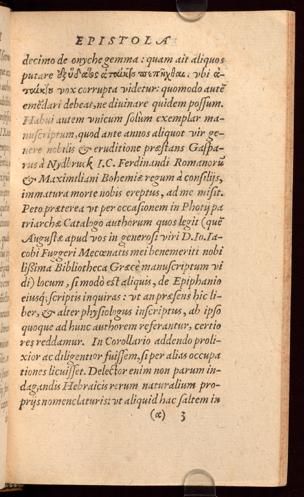 EPISTOLA
decimo de onyche gemma: quam ait aliquos
putare
vbi
vox corrupta videtur: quomodo autē
emēdari debeat, ne diuinare quidem possum.
Habui autem vnicum solùm exemplar ma-
nuscriptum, quod ante annos aliquot vir ge-
nere nobilis & eruditione præstans Gaspa-
rus à Nydbruck I.C. Ferdinandi Romanorū
& Maximiliani Bohemiæ regum à consilijs,
immatura morte nobis ereptus, ad me misit.
Peto præterea vt per occasionem in Photij pa
triarchæ Catalogo authorum quos legit (quē
Augustæ apud vos in generosi viri D. Io. Ia-
cobi Fuggeri Mecœnatis mei benemeriti nobi
lissima Bibliotheca Græcè manuscriptum vi
di) locum, si modò est aliquis, de Epiphanio
eiusq; scriptis inquiras: vt an præsens hic li-
ber, & alter physiologus inscriptus, ab ipso
quoque ad hunc authorem referantur, certio
res reddamur. In Corollario addendo proli-
xior ac diligentior fuissem, si per alias occupa
tiones licuisset. Delector enim non parum in-
dagandis Hebraicis rerum naturalium pro-
prijs nomenclaturis: vt aliquid hac saltem in
(α) 3